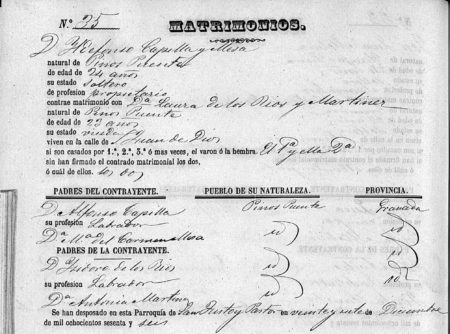 N.º 35 MATRIMONIOS.
D. Yldefonso Capilla y Mesa
natural de Pinos Puente
de edad de 24 años
su estado soltero
de profesion propietario
contrae matrimonio con Dª Laura de los Rios y Martinez
natural de Pinos Puente
de edad de 22 años
su estado viuda
viven en la calle de S. Juan de Dios
si son casados por 1.ª, 2.ª, 3.ª ó mas veces, el varon ó la hembra El 1ª y ella 2ª
sin han firmado el contrado matrimonial los dos,
ó cuál de ellos. los dos
PADRES DEL CONTRAYENTE. PUEBLO DE SU NATURALEZA. PROVINCIA.
D. Alfonso Capilla Pinos Puente Granada
su profesion Labrador id id
Dª Mª del Carmen Mesa id id
PADRES DE LA CONTRAYENTE.
D. Ysidoro de los Rios id id
su profesion Labrador
Dª Antonia Martinez id id
Se han desposado en esta Parroquia de San Justo y Pastor en veinte y siete de Diciembre
de mil ochocientos sesenta y seis